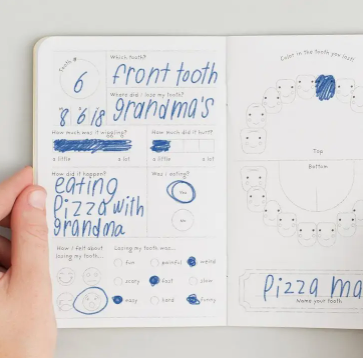 Tooth #
6
Which tooth?
front tooth
Where did I lose my tooth?
8 6 18 grandma's
How much was it wiggling?
How much did it hurt?
a little a lot
a little a lot
How did it happen?
Was I eating?
eating
pizza with
grandma
How I felt about
losing my tooth...
Losing my tooth was...
fun painful weird
scary fast slow
easy hard funny
Color in the tooth you lost!
Top
Bottom
pizza ma
Name your tooth